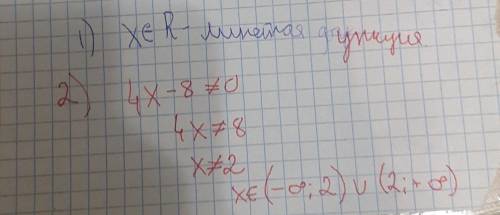 1) x∈R - линейная функция
2) 4x-8≠0
4x≠8
x≠2
x∈(-∞;2)∪(2;+∞)